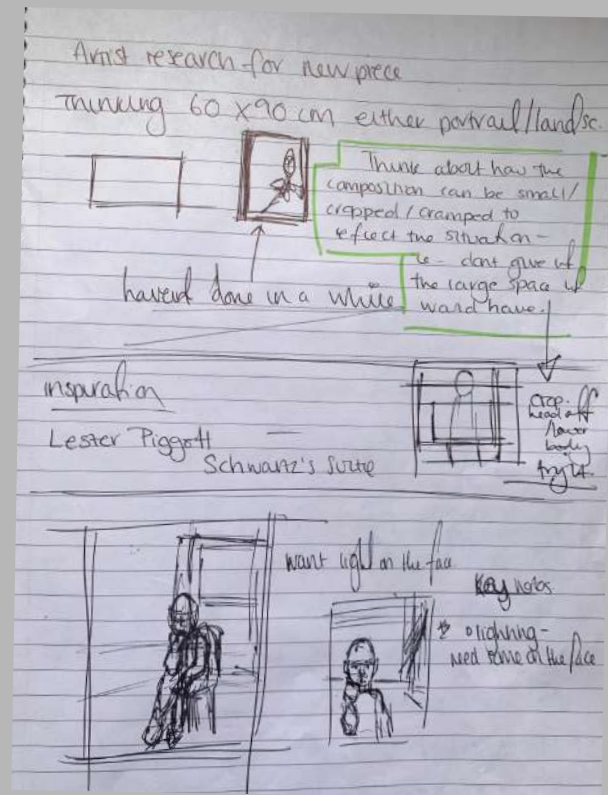 Artist research for new piece
Thinking 60 x 90 cm either portrait/landsc.
Think about how the
composition can be small/
cropped/cramped to
reflect the situation -
ie - dont give it
the large space it
haven't done in a while
inspiration
Lester Piggott
Schwartz's
crop
head off
lower
body
try it.
want light on the face
Key notes
lighting -
need some on the face